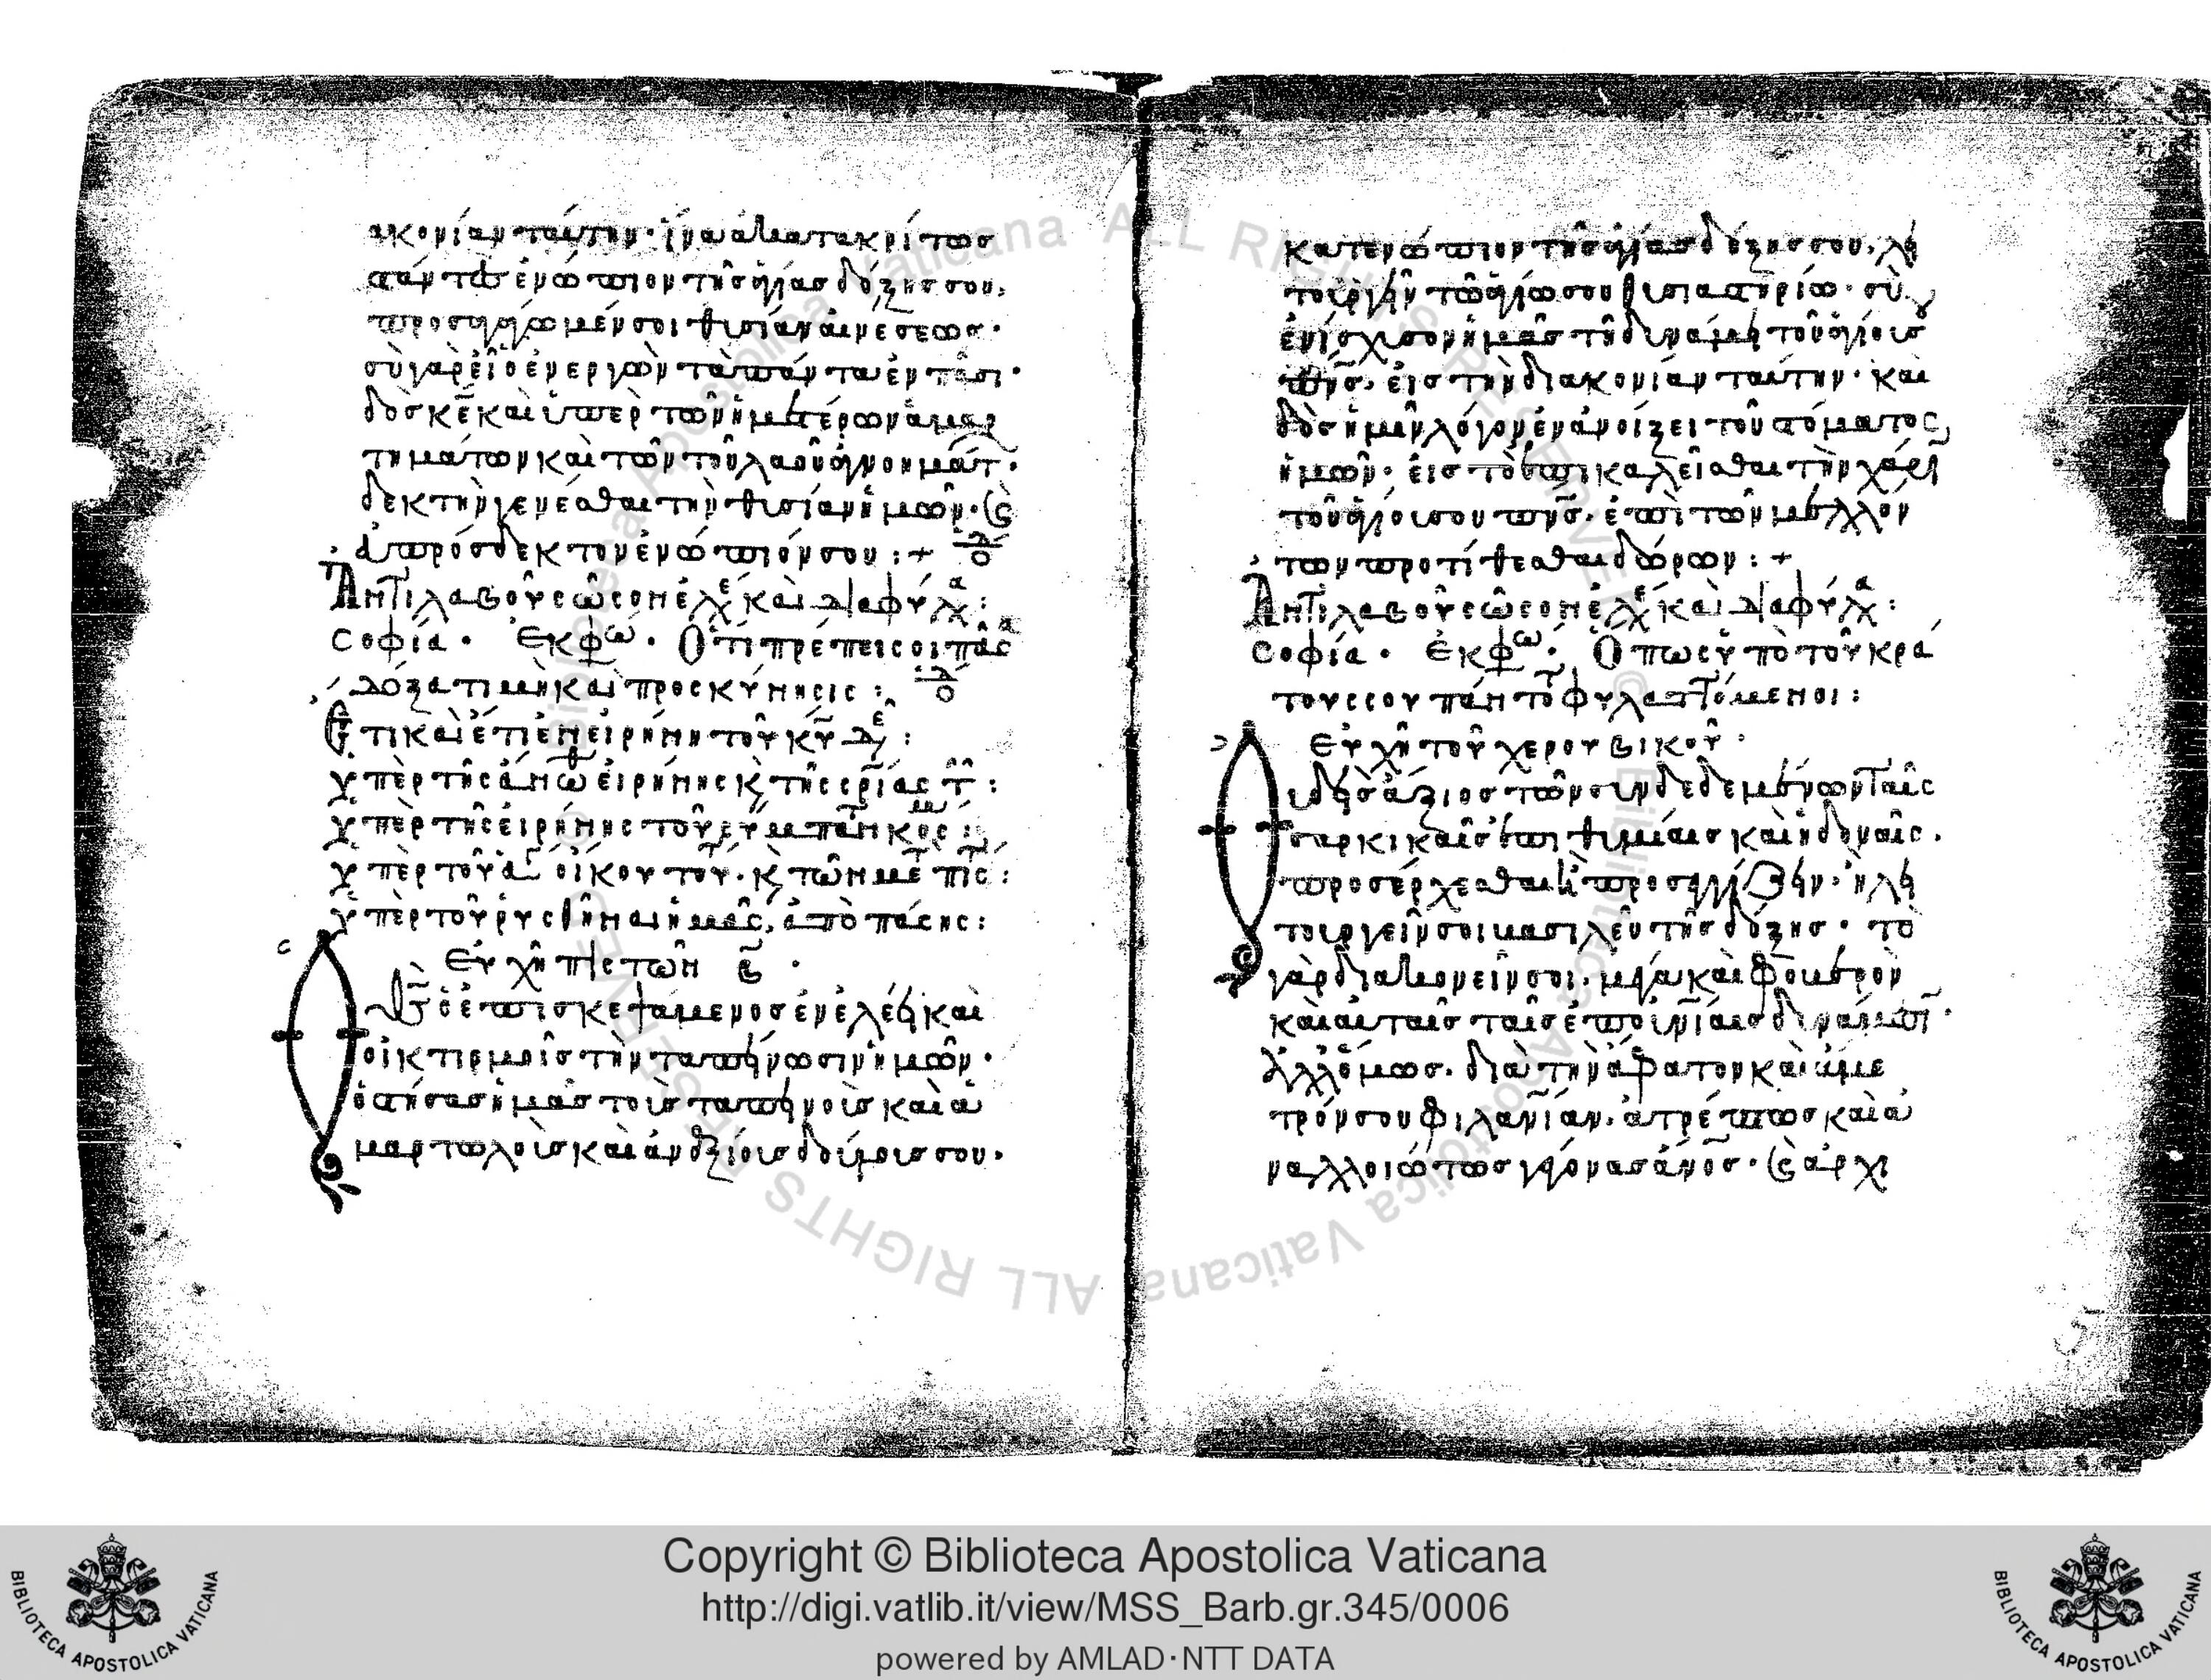 ακονίαν ταύτην· ἵνα ἀκατακρίτως
στάντες ἐνώπιον τῆς ἁγίας δόξης σου,
προσαγάγωμέν σοι θυσίαν αἰνέσεως·
σὺ γὰρ εἶ ὁ ἐνεργῶν τὰ πάντα ἐν πᾶσι·
δὸς κε καὶ ὑπὲρ τῶν ἡμετέρων ἁμαρ
τημάτων καὶ τῶν τοῦ λαοῦ ἀγνοημάτ·
δεκτὴν γενέσθαι τὴν θυσίαν ἡμῶν· καὶ
εὐπρόσδεκτον ἐνώπιόν σου :+
Ἀντιλαβοῦ σῶσον ἐλε καὶ διαφύλα :
σοφία · ἐκφω · Ὅτι πρέπει σοι πᾶσα
δόξα τιμὴ καὶ προσκύνησις :
Ἔτι καὶ ἔτι ἐν εἰρήνη τοῦ κυ δε :
ὑπὲρ τῆς ἄνωθ εἰρήνης κ τῆς σρίας τ :
ὑπὲρ τῆς εἰρήνης τοῦ σύμπαντ κος :
ὑπὲρ τοῦ ἁγ οἴκου τού · κ τῶν μετ πίς :
ὑπὲρ τοῦ ῥυσθῆναι ἡμᾶς, ἀπὸ πάσης :
Εὐχὴ πιστῶν β ·
ὁ θς ὁ ἐπισκεψάμενος ἐν ἐλέει καὶ
οἰκτιρμοῖς τὴν ταπείνωσιν ἡμῶν·
ὁ στήσας ἡμᾶς τοὺς ταπεινοὺς καὶ ἁ
μαρτωλοὺς καὶ ἀναξίους δούλους σου·
κατενώπιον τῆς ἁγίας δόξης σου, λει
τουργεῖν τῷ ἁγίῳ σου θυσιαστηρίῳ· σὺ
ἐνίσχυσον ἡμᾶς τῇ δυνάμει τοῦ ἁγίου σου
πνς, εἰς τὴν διακονίαν ταύτην· καὶ
δὸς ἡμῖν λόγον ἐν ἀνοίξει τοῦ στόματος
ἡμῶν· εἰς τὸ ἐπικαλεῖσθαι τὴν χάρι
τοῦ ἁγίου σου πνς· ἐπὶ τῶν μελλόν
των προτίθεσθαι δώρων :+
Ἀντιλαβοῦ σῶσον ἐλε καὶ διαφύλα :
σοφία · ἐκφω · Ὅπως ὑπὸ τοῦ κρά
τους σου πάντοτ φυλαττόμενοι :
Εὐχὴ τοῦ χερουβικοῦ ·
Οὐδεὶς ἄξιος τῶν συνδεδεμένων ταῖς
σαρκικαῖς ἐπιθυμίαις καὶ ἡδοναῖς·
προσέρχεσθαι ἢ προσεγγίζειν· ἢ λει
τουργεῖν σοι βασιλεῦ τῆς δόξης· τὸ
γὰρ διακονεῖν σοι, μέγα καὶ φοβερὸν
καὶ αὐταῖς ταῖς ἐπουνίαις δυνάμεσι·
ἀλλ' ὅμως· διὰ τὴν ἄφατον καὶ ἀμέ
τρόν σου φιλανίαν· ἀτρέπτως καὶ ἀ
ναλλοιώτως γέγονας ἄνος· καὶ ἀρχι
Copyright © Biblioteca Apostolica Vaticana
http://digi.vatlib.it/view/MSS_Barb.gr.345/0006
powered by AMLAD·NTT DATA